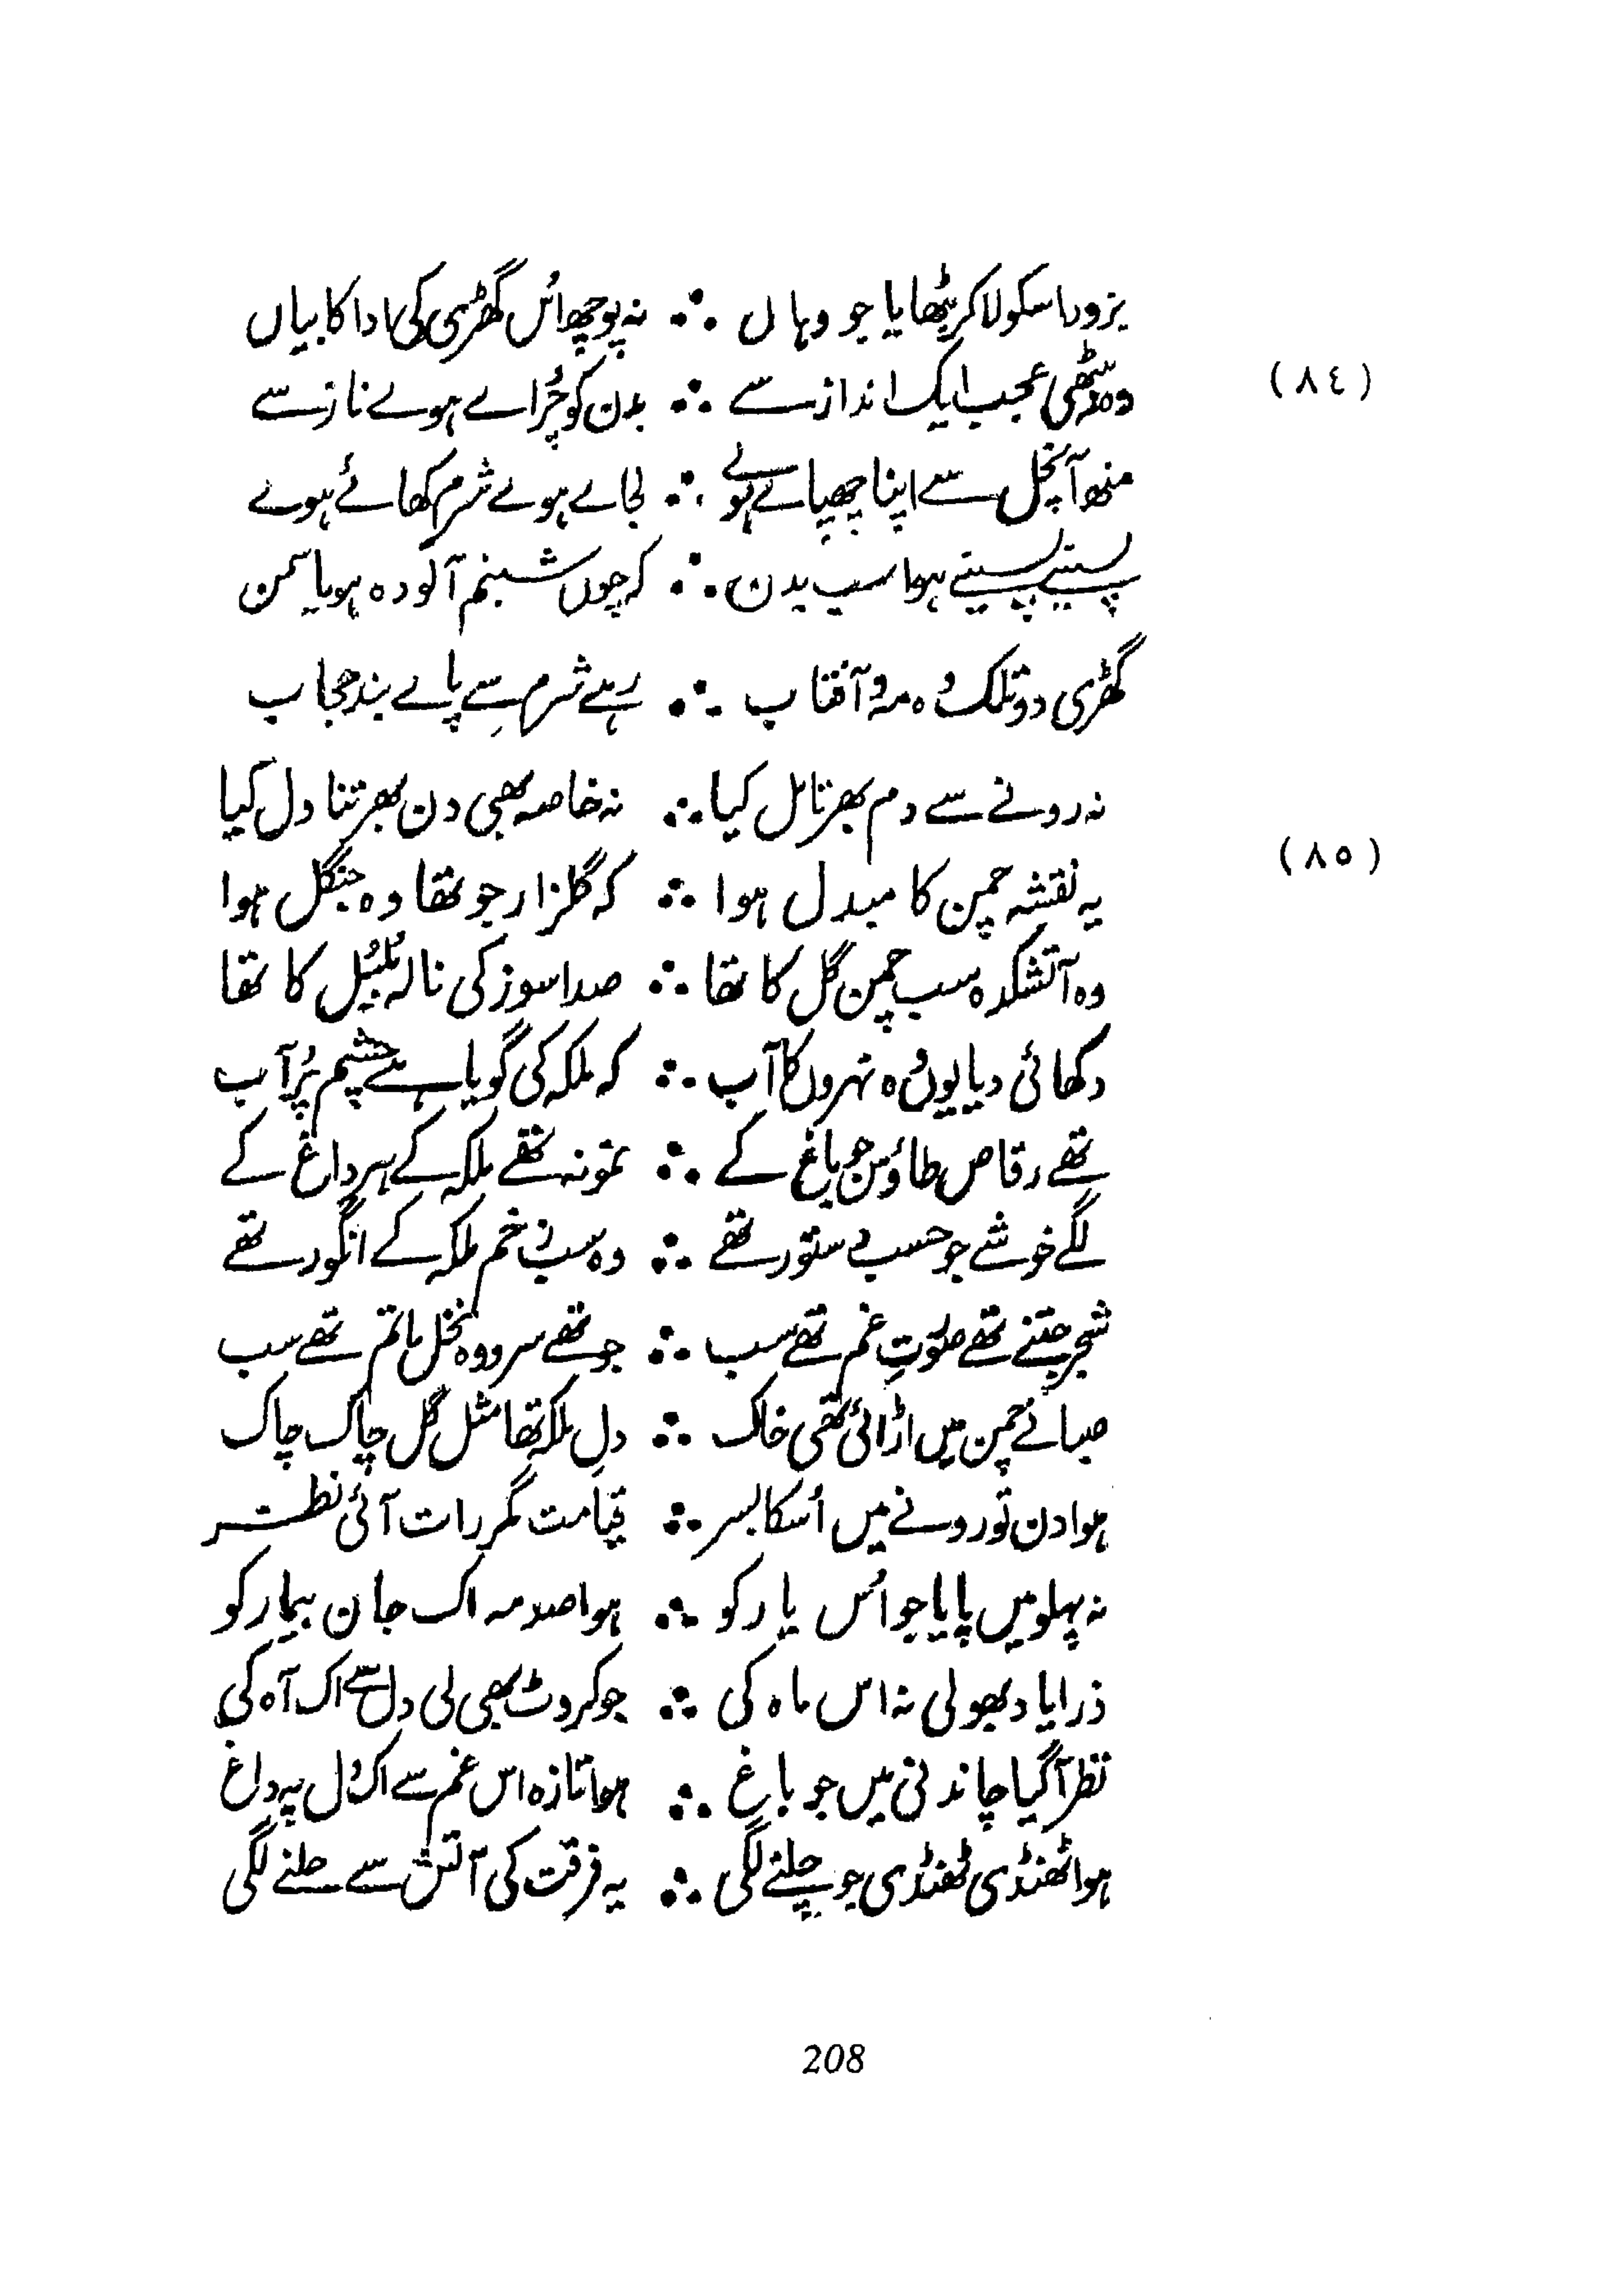 بزور اسکو لا کر بٹھایا جو وہاں ∴ نہ پوچھ اُس گھڑی کی ادا کا بیاں
(٨٤)
وہ بیٹھی عجب ایک انداز سے ∴ بدن کو چُراے ہوے ناز سے
منھ آنچل سے اپنا چھپاے ہوے ∴ لجاے ہوے شرم کھائے ہوے
پسینے پسینے ہوا سب بدن ∴ کہ جوں شبنم آلودہ ہو یاسمن
گھڑی دو تلک وہ مہ و آفتاب ∴ رہے شرم سے پاے بند حجاب
نہ رونے سے دم بھر تامل کیا ∴ نہ خاصہ بھی دن بھر تناول کیا
(٨٥)
یہ نقشہ چمن کا مبدل ہوا ∴ کہ گلزار جو تھا وہ جنگل ہوا
وہ آتشکدہ سب چمن گل کا تھا ∴ صدا سوز کی نالہ بُلبُل کا تھا
دکھائی دیا یوں وہ نہروں کا آب ∴ کہ ملکہ کی گویا ہے چشم پُر آب
تھے رقاص طاؤس جو باغ کے ∴ نمونہ تھے ملکہ کے ہر داغ کے
لگے خوشے جو حسب دستور تھے ∴ وہ سب زخم ملکہ کے انگور تھے
شجر جتنے تھے صورتِ غم تھے سب ∴ جو تھے سرو وہ نخل ماتم تھے سب
صبا نے چمن میں اڑائی تھی خاک ∴ دلِ ملکہ تھا مثل گل چاک چاک
ہوا دن تو رونے میں اُسکا بسر ∴ قیامت مگر رات آئی نظر
نہ پہلو میں پایا جو اُس یار کو ∴ ہوا صدمہ اک جان بیمار کو
ذرا یاد بھولی نہ اس ماہ کی ∴ جو کروٹ بھی لی دل سے اک آہ کی
نظر آگیا چاندنی میں جو باغ ∴ ہوا تازہ اس غم سے اک دل پہ داغ
ہوا ٹھنڈی ٹھنڈی جو چلنے لگی ∴ یہ فرقت کی آتش سے جلنے لگی
208